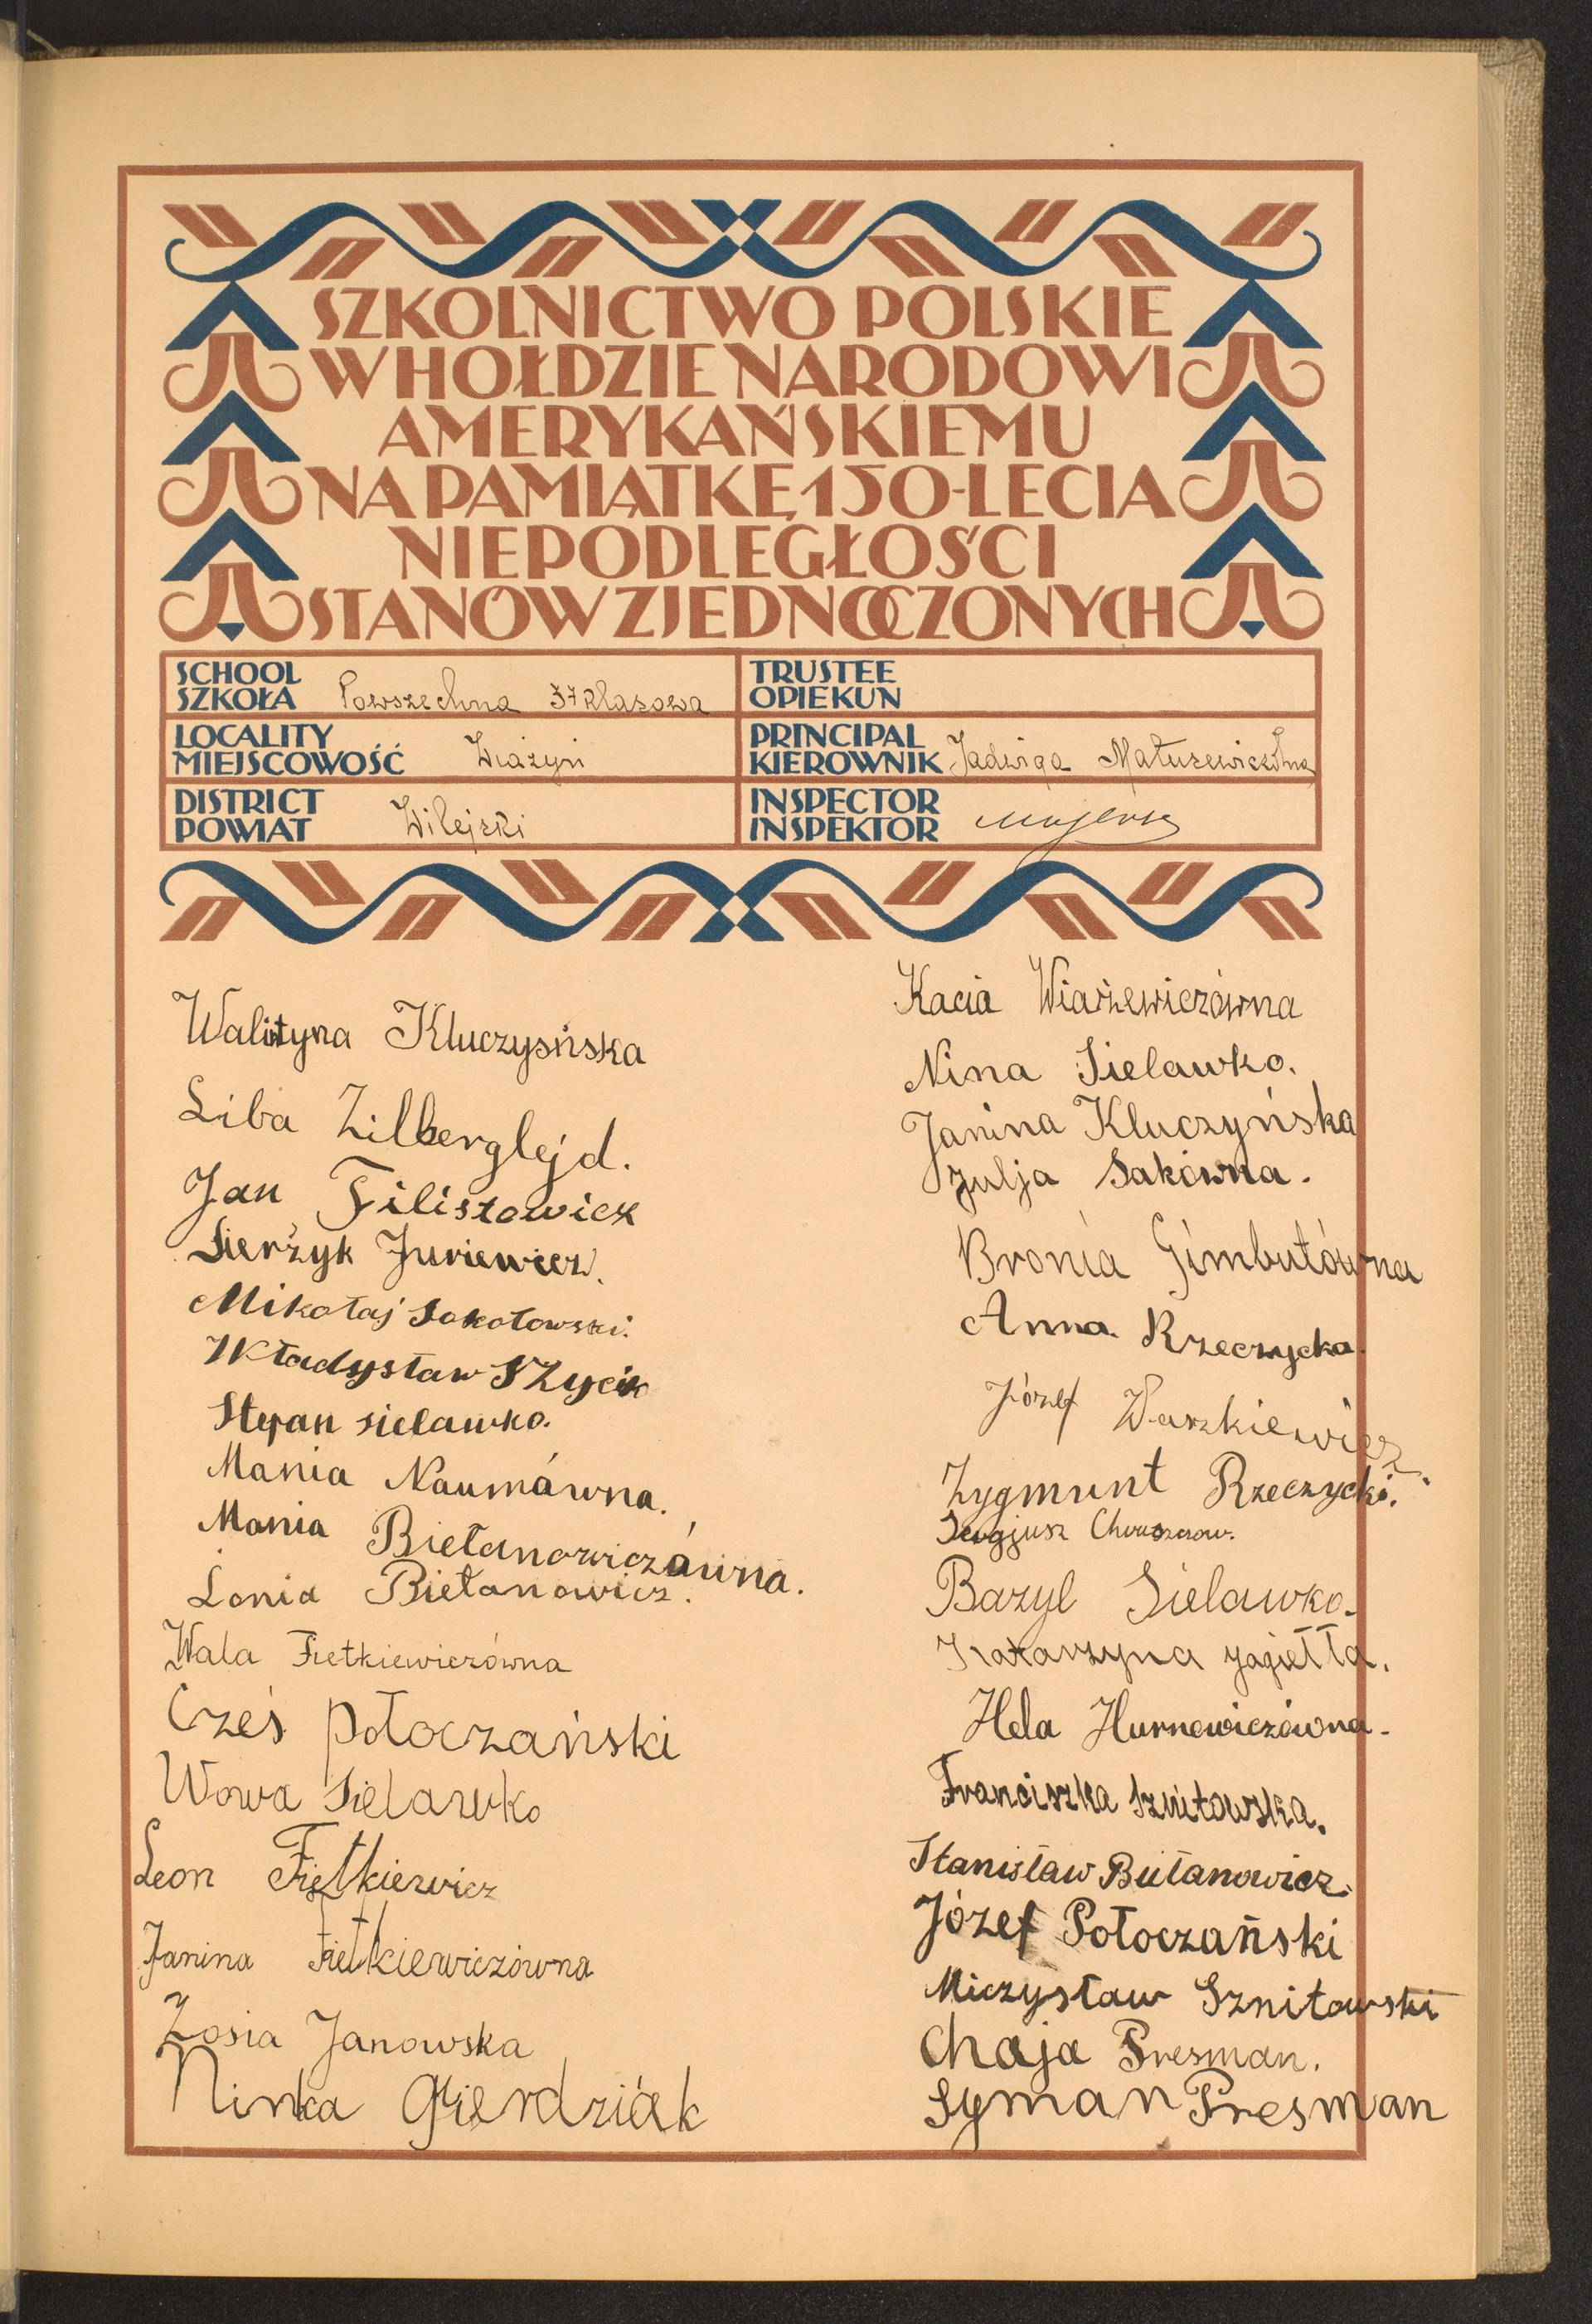 SZKOLNICTWO POLSKIE
W HOŁDZIE NARODOWI
AMERYKAŃSKIEMU
NA PAMIĄTKĘ 150-LECIA
NIEPODLEGŁOŚCI
STANÓW ZJEDNOCZONYCH
SCHOOL
SZKOŁA Powszechna klasowa
TRUSTEE
OPIEKUN
LOCALITY
MIEJSCOWOŚĆ Wiażyń
PRINCIPAL
KIEROWNIK Jadwiga Matusewiczówna
DISTRICT
POWIAT Wilejski
INSPECTOR
INSPEKTOR
Walityna Kluczysńska
Liba Zilberglejd.
Jan Filistowicz
Sierżyk Juriewicz.
Mikołaj Sokołowski.
Władysław SZycik
Stefan sielawko.
Mania Naumówna.
Mania Biełanowiczówna.
Lonia Biełanowicz.
Wala Fietkiewiczówna
Cześ połoczański
Wowa Sielawko
Leon Fietkiewicz
Janina Fietkiewiczówna
Zosia Janowska
Ninka Gzierdziák
Kacia Wiażewiczówna
Nina Sielawko.
Janina Kluczyńska
Julja Sakówna.
Bronia Gimbutówna
Anna Rzeczycka.
Józef Waszkiewicz.
Zygmunt Rzeczycki.
Sergjusz
Bazyl Sielawko.
Katarzyna Jagiełła.
Hela Hurnowiczówna.
Franciszka Sznitowska.
Stanisław Biełanowicz.
Józef Połoczański
Miczysław Sznitowski
Chaja Presman.
Syman Presman